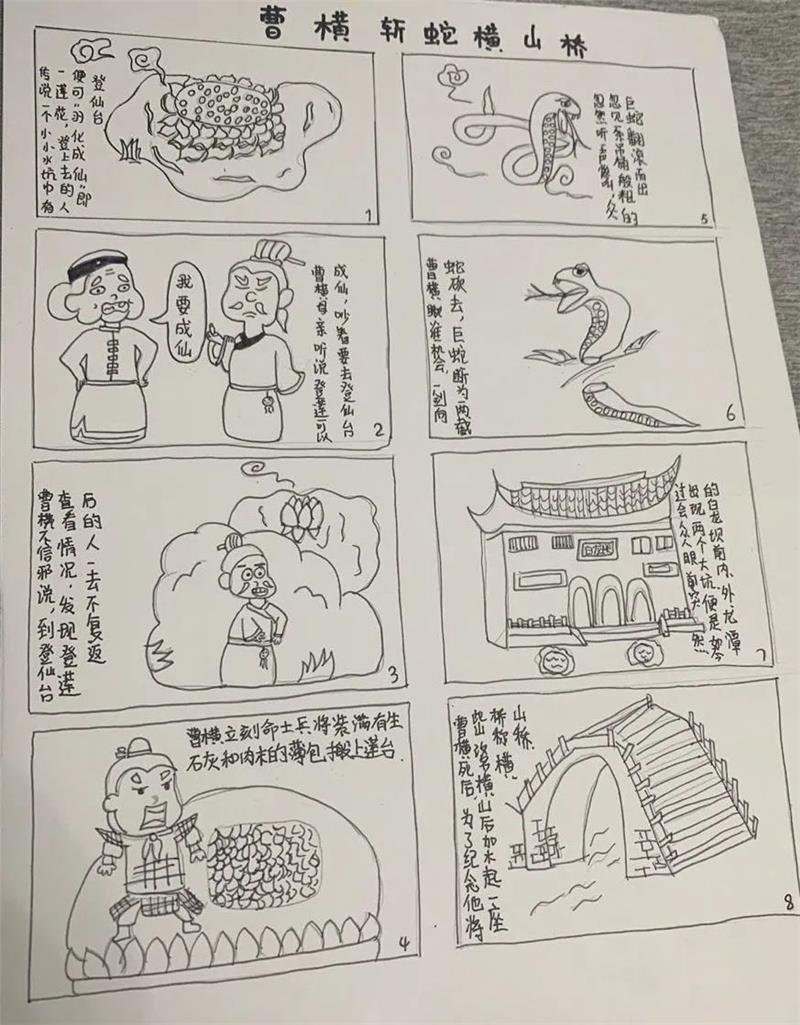 曹横斩蛇横山桥
传说一个小小水坑中有
一莲花，登上去的人
便可“羽化成仙”即
登仙台
1
我要成仙
曹横母亲听说登莲可以
成仙，吵着要去登仙台
2
曹横不信邪说，到登仙台
查看情况，发现登莲
后的人一去不复返
3
曹横立刻命士兵将装满有生
石灰和肉末的薄包搬上莲台.
4
忽然听声轰响，众
忽见条吊桶般粗的
巨蛇翻滚而出
5
曹横瞅准机会，一剑向
蛇砍去，巨蛇断为两截
6
过会众人眼前突然
出现两个大坑，便是如今
的白龙坝前内、外龙潭
7
曹横死后，为了纪念他将
此山名横山后加木起一座
桥称横
山桥.
8